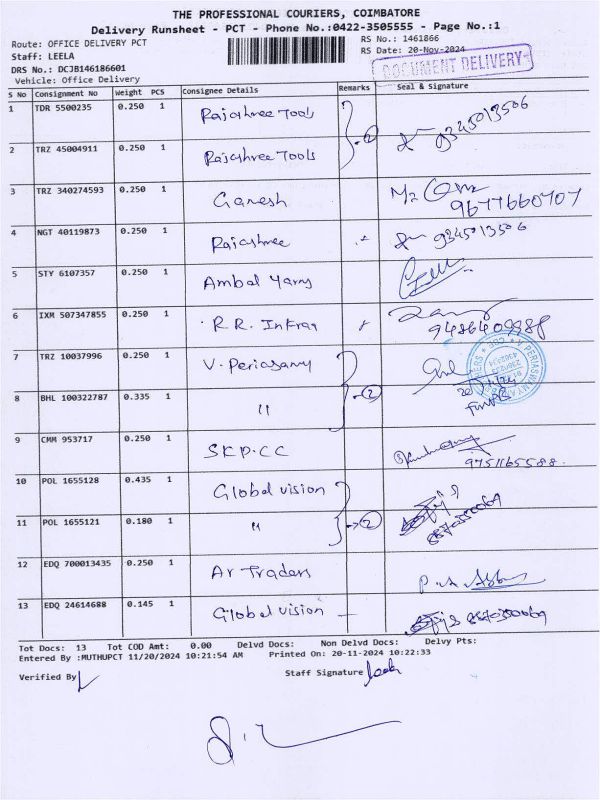 THE PROFESSIONAL COURIERS, COIMBATORE
Delivery Runsheet - PCT - Phone No.:0422-3505555 - Page No.:1
Route: OFFICE DELIVERY PCT RS No.: 1461866
Staff: LEELA RS Date: 20-Nov-2024
DOCUMENT DELIVERY
DRS No.: DCJB146186601
Vehicle: Office Delivery
S No Consignment No Weight PCS Consignee Details Remarks Seal & Signature
1 TDR 5500235 0.250 1 Rajashree Tools 9345013506
2 TRZ 45004911 0.250 1 Rajashree Tools
3 TRZ 340274593 0.250 1 Ganesh 9677660707
4 NGT 40119873 0.250 1 Rajashree 9345013506
5 STY 6107357 0.250 1 Ambal Yarns
6 IXM 507347855 0.250 1 R.R. Infraa 9486409988
7 TRZ 10037996 0.250 1 V. Periasamy
8 BHL 100322787 0.335 1 " 2
9 CMM 953717 0.250 1 SKP.CC 9751165588
10 POL 1655128 0.435 1 Global vision
11 POL 1655121 0.180 1 " 2
12 EDQ 700013435 0.250 1 Ar Traders
13 EDQ 24614688 0.145 1 Global vision
Tot Docs: 13 Tot COD Amt: 0.00 Delvd Docs: Non Delvd Docs: Delvy Pts:
Entered By :MUTHUPCT 11/20/2024 10:21:54 AM Printed On: 20-11-2024 10:22:33
Verified By Staff Signature Leela